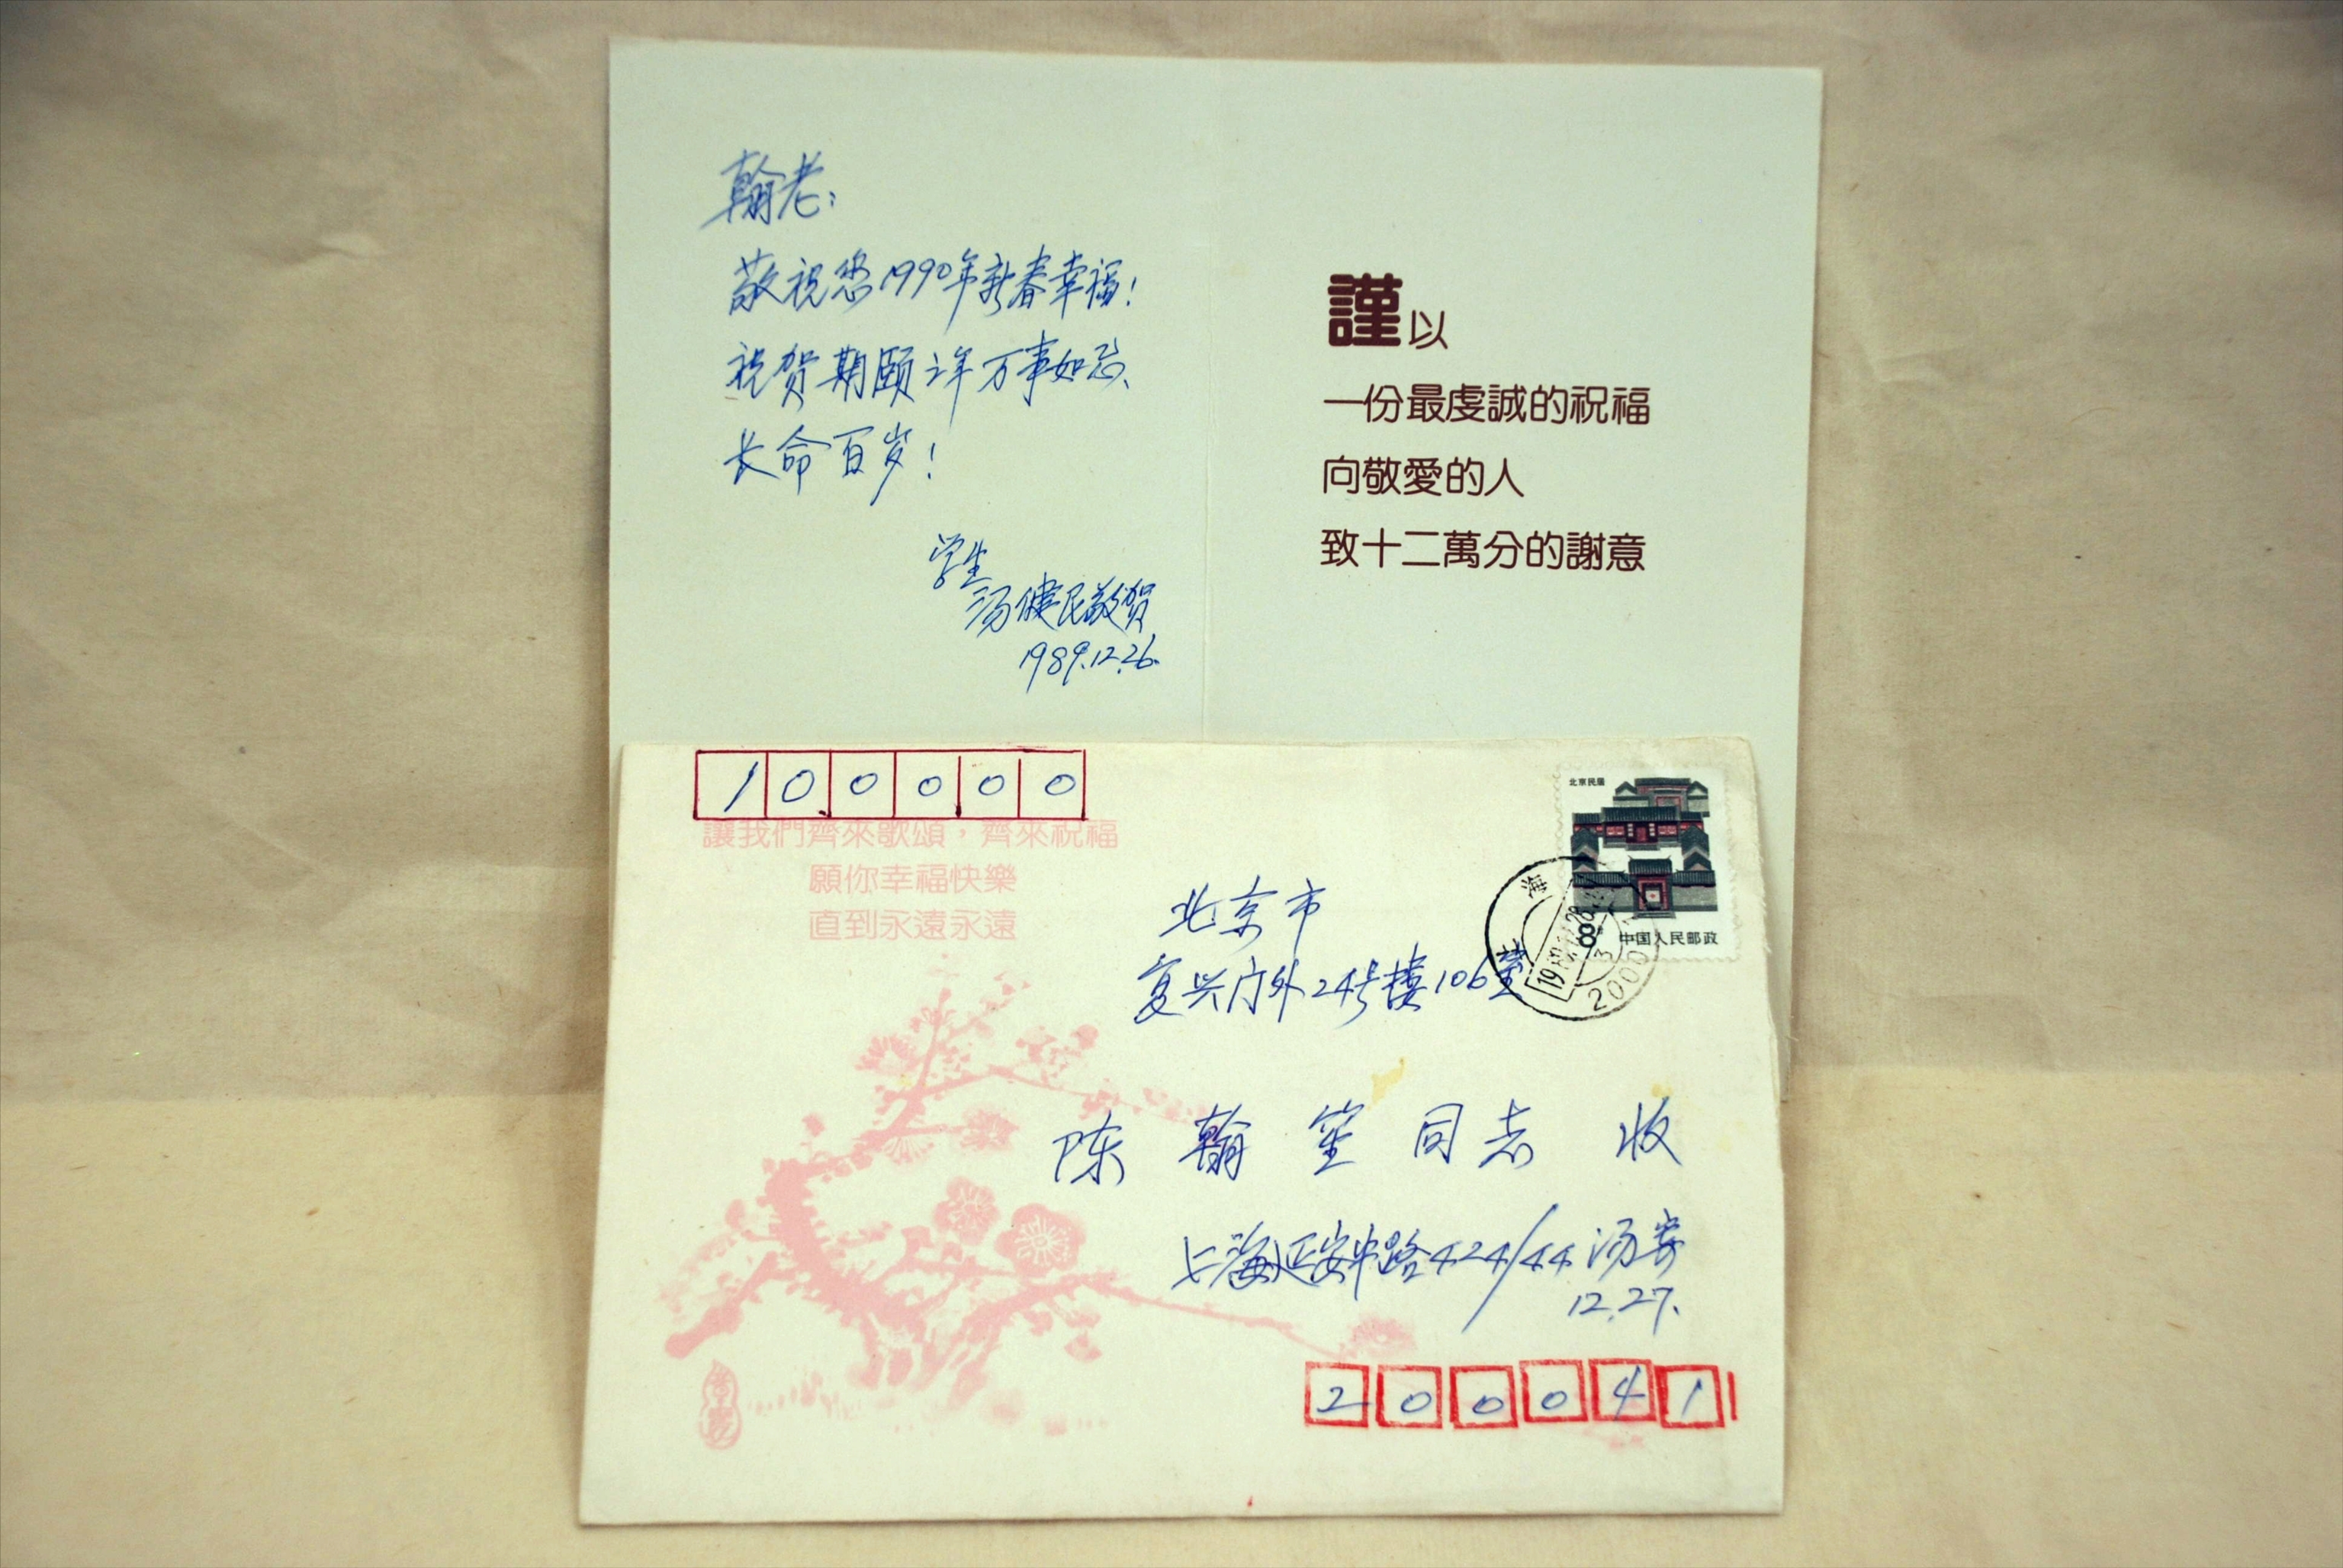 翰老：
敬祝您1990年新春幸福！
祝贺期颐之年万事如意、
长命百岁！
学生
汤健民敬贺
1989.12.26.
謹以
一份最虔誠的祝福
向敬愛的人
致十二萬分的謝意
100000
讓我們齊來歌頌，齊來祝福
願你幸福快樂
直到永遠永遠
北京民居
8分
中国人民邮政
上海
2000
北京市
复兴门外24号楼106室
陈翰笙同志 收
上海延安中路424/44 汤寄
12.27.
200041